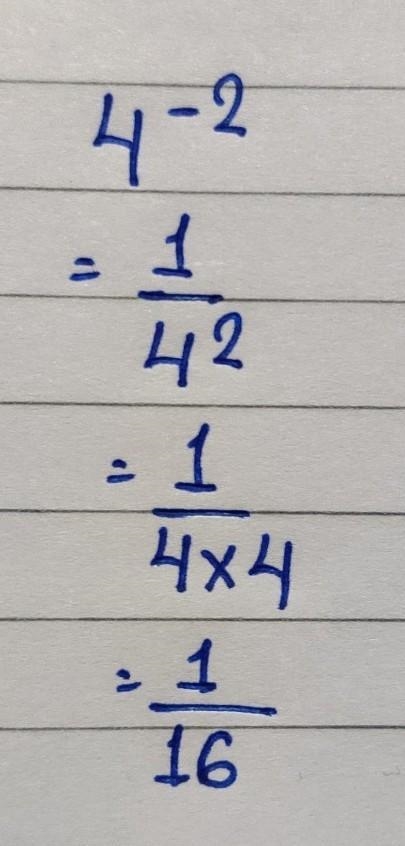 4⁻²
= 1/4²
= 1/4×4
= 1/16